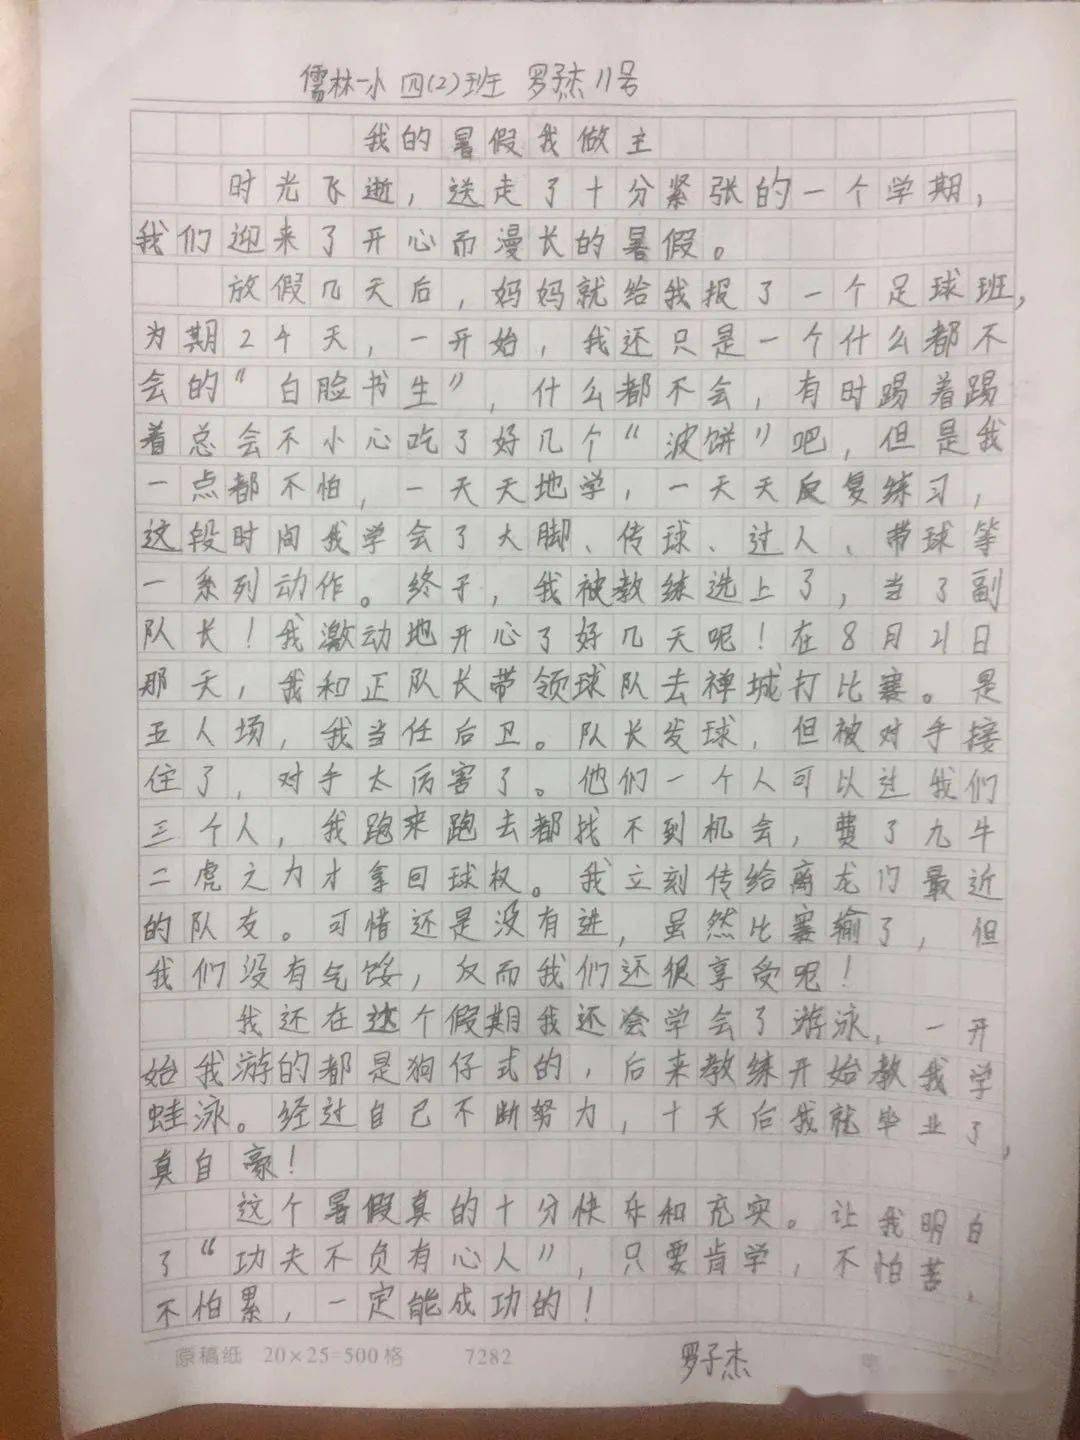 儒林一小 四(2)班 罗子杰 11号
我的暑假我做主
时光飞逝，送走了十分紧张的一个学期，
我们迎来了开心而漫长的暑假。
放假几天后，妈妈就给我报了一个足球班，
为期24天，一开始，我还只是一个什么都不
会的“白脸书生”，什么都不会，有时踢着踢
着总会不小心吃了好几个“波饼”吧，但是我
一点都不怕，一天天地学，一天天反复练习，
这段时间我学会了大脚、传球、过人、带球等
一系列动作。终于，我被教练选上了，当了副
队长！我激动地开心了好几天呢！在8月21日
那天，我和正队长带领球队去禅城打比赛。是
五人场，我当任后卫。队长发球，但被对手接
住了，对手太厉害了。他们一个人可以过我们
三个人，我跑来跑去都找不到机会，费了九牛
二虎之力才拿回球权。我立刻传给离龙门最近
的队友。可惜还是没有进，虽然比赛输了，但
我们没有气馁，反而我们还很享受呢！
我还在这个假期我还会学会了游泳，一开
始我游的都是狗仔式的，后来教练开始教我学
蛙泳。经过自己不断努力，十天后我就毕业了，
真自豪！
这个暑假真的十分快乐和充实。让我明白
了“功夫不负有心人”，只要肯学，不怕苦、
不怕累，一定能成功的！
原稿纸 20×25=500格 7282
罗子杰